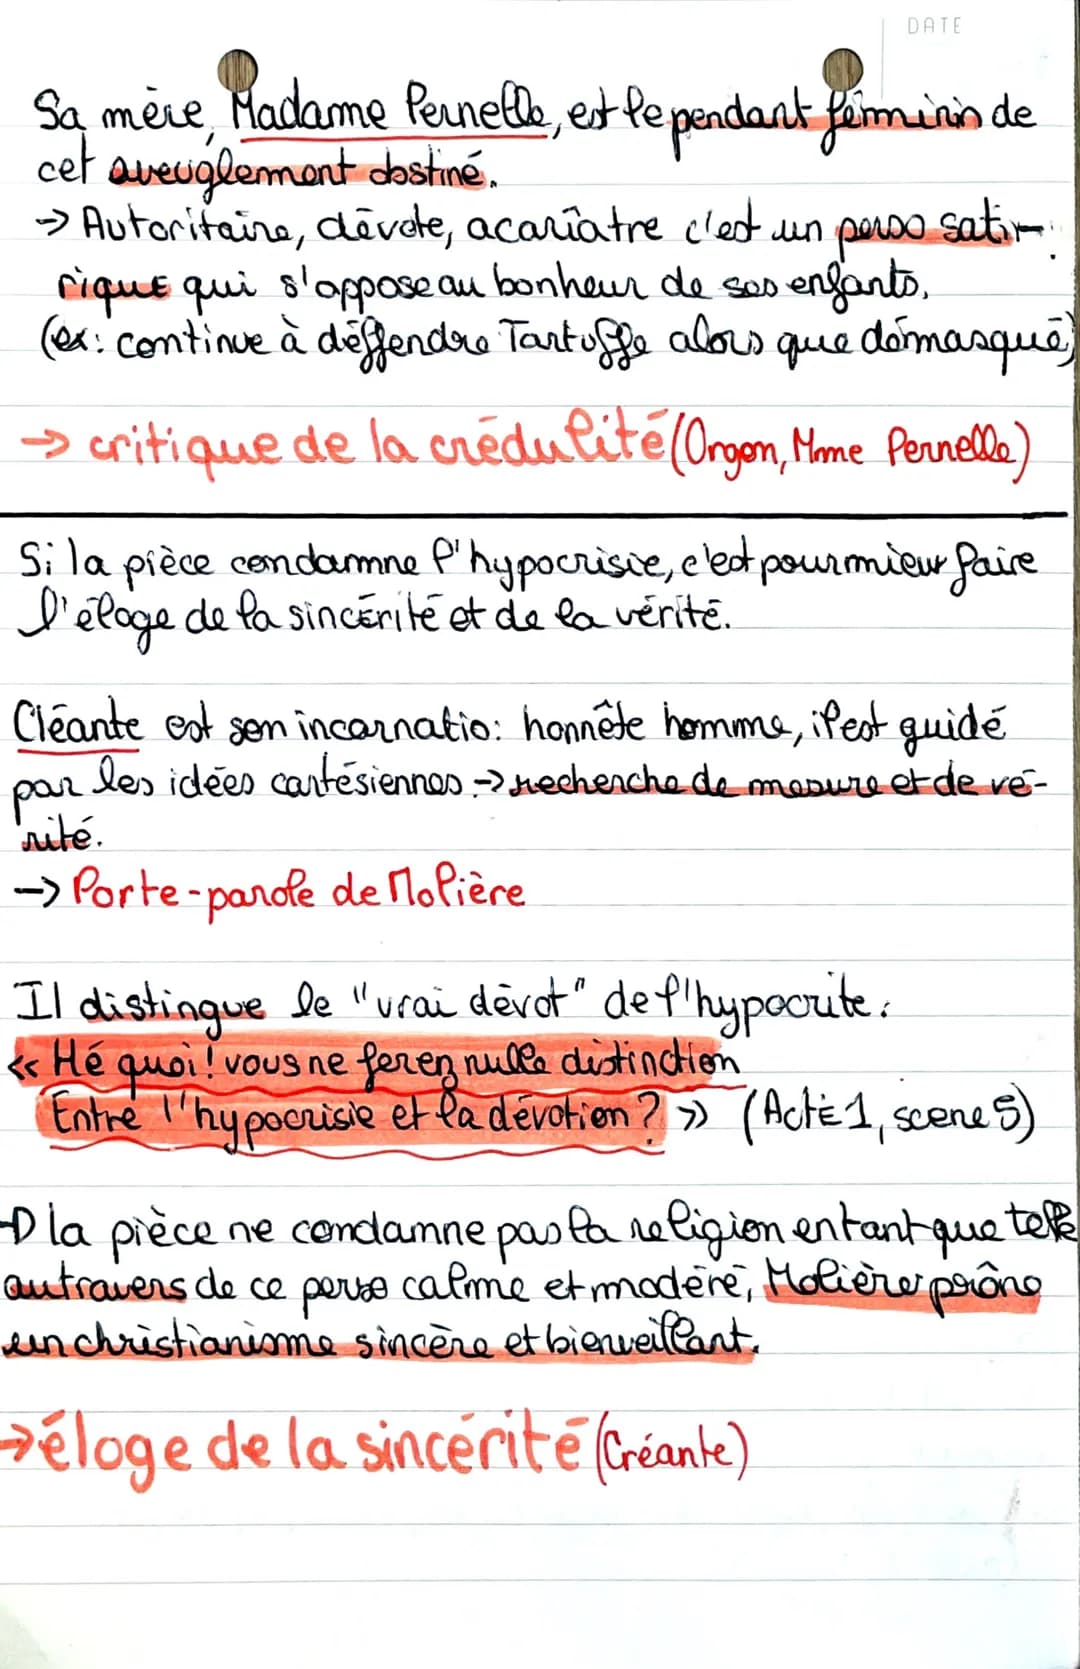 DATE
Sa mère, Madame Pernelle, est le pendant féminin de
cet aveuglement obstiné.
-> Autoritaire, dévote, acariâtre c'est un perso sati-
rique qui s'oppose au bonheur de ses enfants.
(ex: continue à déffendre Tartuffe alors que démasqué)
-> critique de la crédulité (Orgon, Mme Pernelle)
Si la pièce condamne l'hypocrisie, c'est pour mieux faire
l'éloge de la sincérité et de la vérité.
Cléante est son incarnatio: honnête homme, il est guidé
par les idées cartésiennes -> recherche de mesure et de vé-
rité.
-> Porte-parole de Molière
Il distingue le "vrai dévot" de l'hypocrite:
<< Hé quoi! vous ne ferez nulle distinction
Entre l'hypocrisie et la dévotion? >> (Acte 1, scene 5)
-> la pièce ne condamne pas la religion en tant que telle
au travers de ce perso calme et modéré, Molière prône
un christianisme sincère et bienveillant.
-> éloge de la sincérité (Créante)